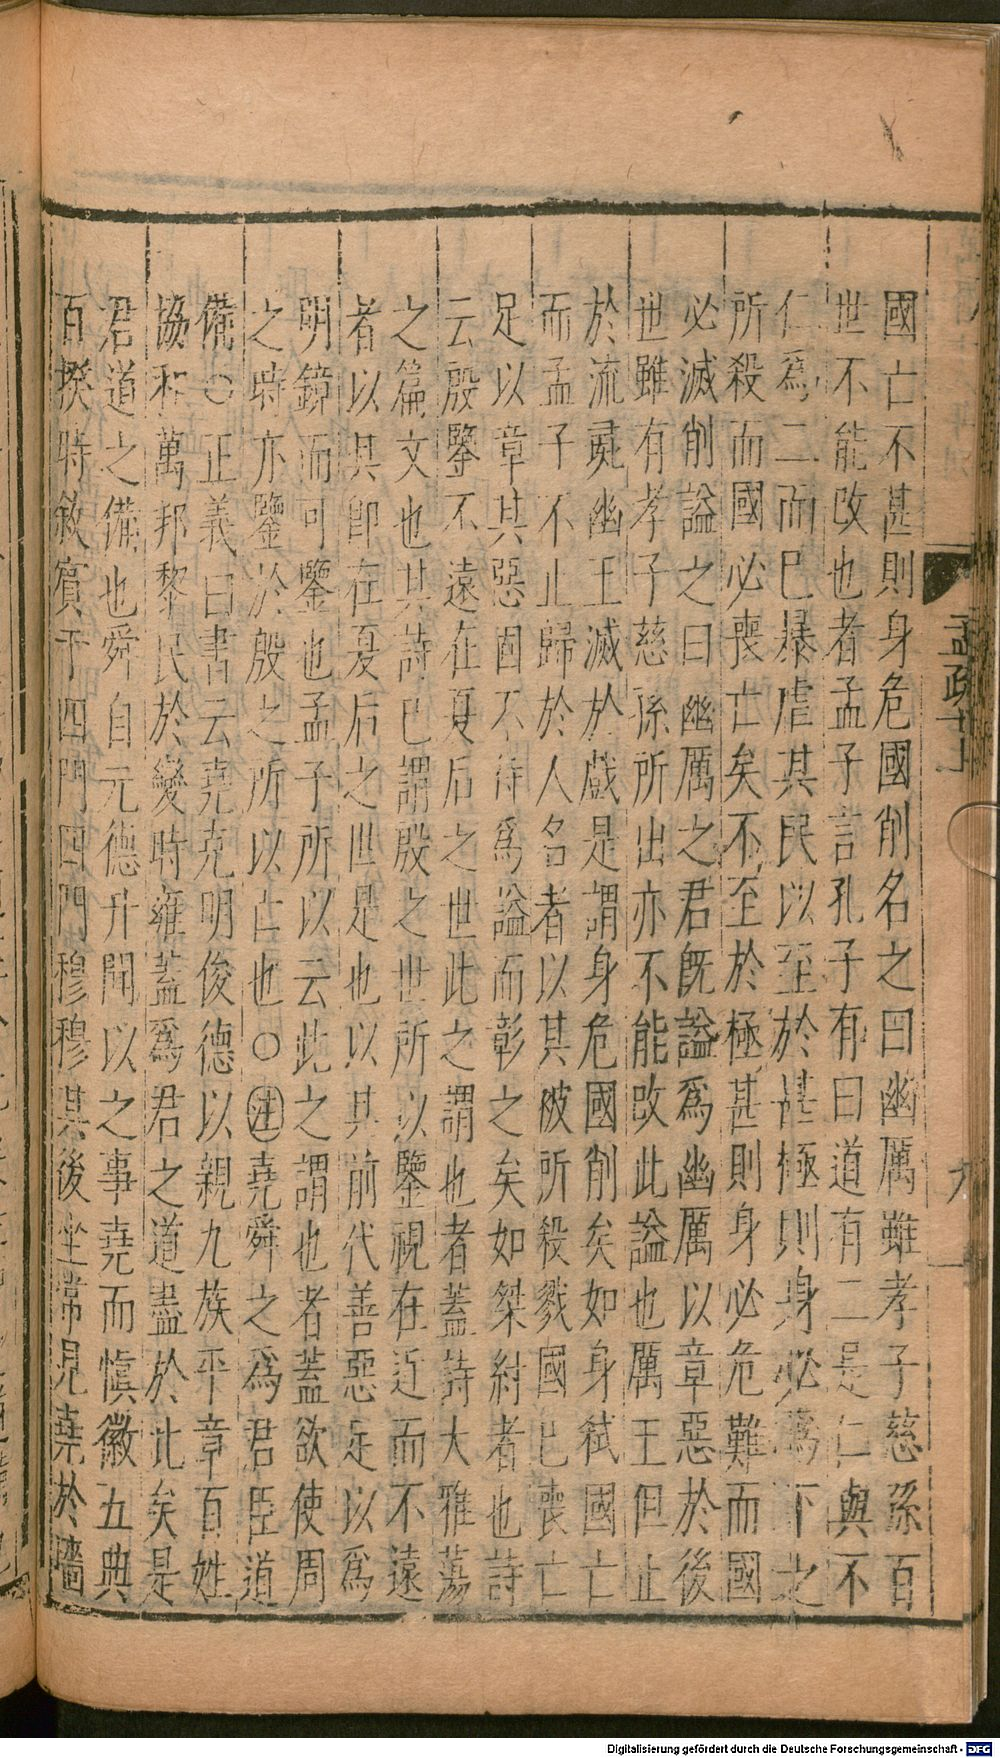 孟疏卷七
九
國亡不甚則身危國削名之曰幽厲雖孝子慈孫百
世不能改也者孟子言孔子有曰道有二是仁與不
仁爲二而巳暴虐其民以至於甚極則身必爲下之
所殺而國必喪亡矣不至於極甚則身必危難而國
必滅削謚之曰幽厲之君旣謚爲幽厲以章惡於後
世雖有孝子慈孫所出亦不能改此謚也厲王但止
於流彘幽王滅於戲是謂身危國削矣如身弑國亡
而孟子不止歸於人名者以其被所殺戮國巳喪亡
足以章其惡固不待爲謚而彰之矣如桀紂者也詩
云殷鑒不遠在夏后之世此之謂也者蓋詩大雅蕩
之篇文也其詩巳謂殷之世所以鑒視在近而不遠
者以其卽在夏后之世是也以其前代善惡足以爲
明鏡而可鑒也孟子所以云此之謂也者蓋欲使周
之時亦鑒於殷之所以亡也○注堯舜之爲君臣道
備○正義曰書云堯克明俊德以親九族平章百姓
協和萬邦黎民於變時雍蓋爲君之道盡於此矣是
君道之備也舜自元德升聞以之事堯而愼徽五典
百揆時敘賓于四門四門穆穆其後坐常見堯於墻
Digitalisierung gefördert durch die Deutsche Forschungsgemeinschaft - DFG